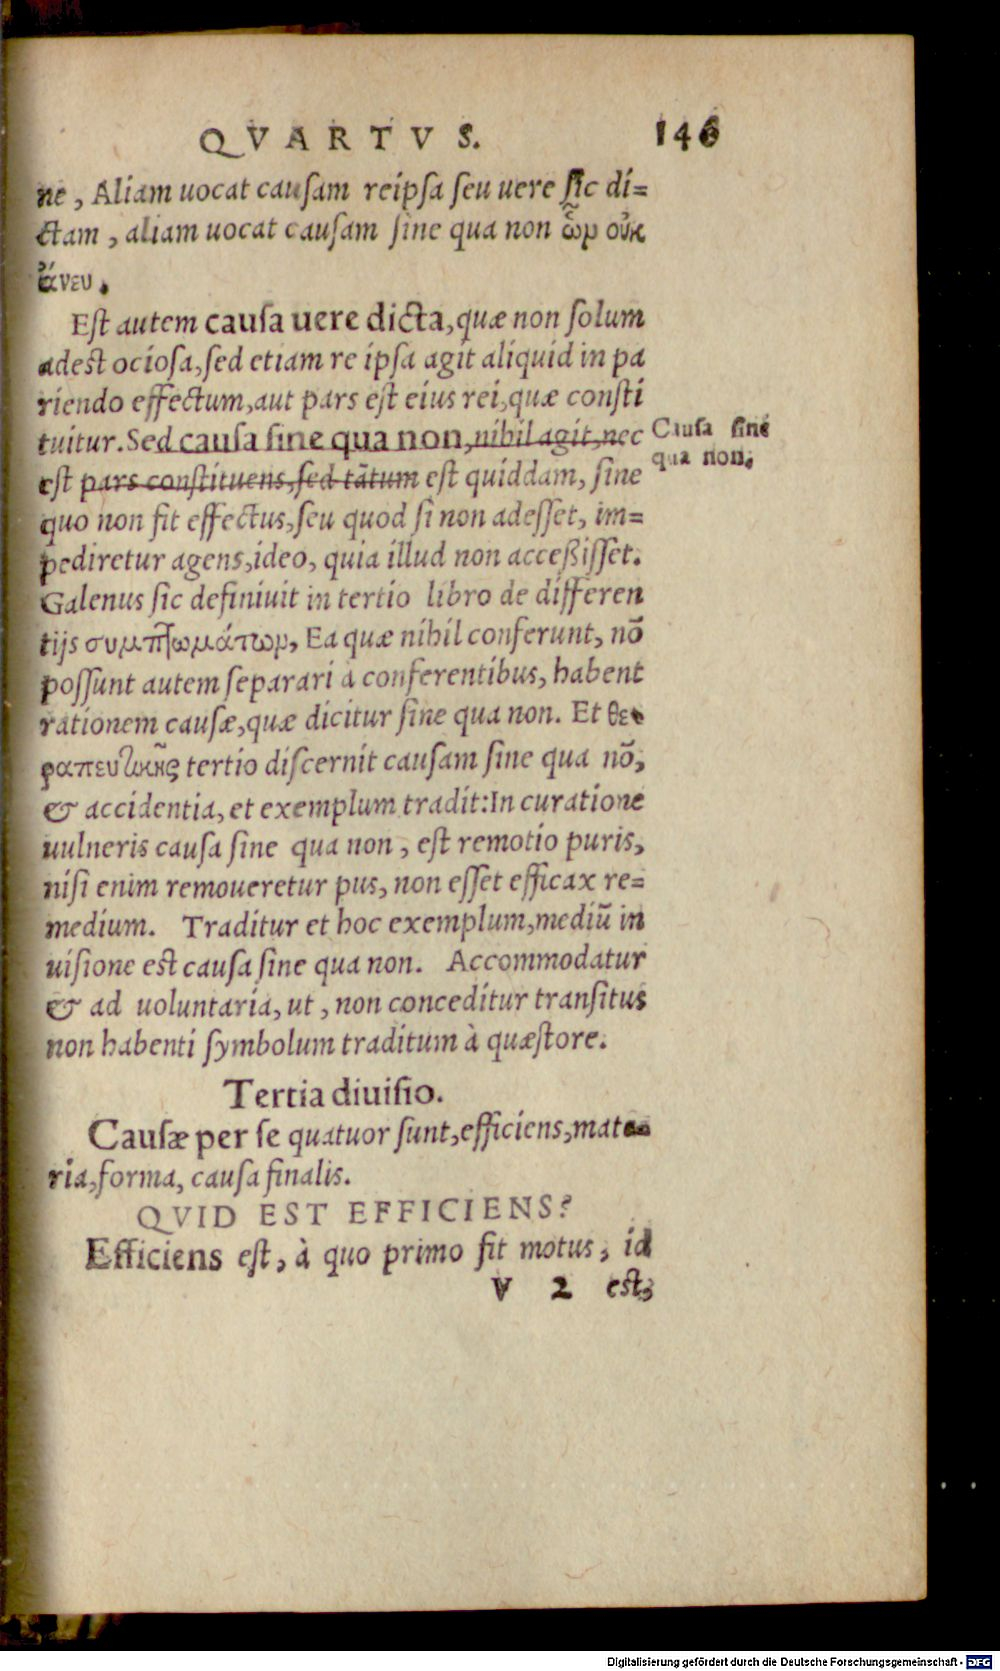 QVARTVS. 146
ne, Aliam uocat causam reipsa seu uere sic di=
ctam, aliam uocat causam sine qua non ὧν οὐκ
ἄνευ.
Est autem causa uere dicta, quæ non solum
adest ociosa, sed etiam re ipsa agit aliquid in pa
riendo effectum, aut pars est eius rei, quæ consti
tuitur. Sed causa sine qua non, nihil agit, nec
Causa sine
qua non.
est pars constituens, sed tãtum est quiddam, sine
quo non fit effectus, seu quod si non adesset, im=
pediretur agens, ideo, quia illud non acceßisset.
Galenus sic definiuit in tertio libro de differen
tijs συμπτωμάτων, Ea quæ nihil conferunt, nõ
possunt autem separari à conferentibus, habent
rationem causæ, quæ dicitur sine qua non. Et θε
ραπευτικῆς tertio discernit causam sine qua nõ,
& accidentia, et exemplum tradit: In curatione
uulneris causa sine qua non, est remotio puris,
nisi enim remoueretur pus, non esset efficax re=
medium. Traditur et hoc exemplum, mediũ in
uisione est causa sine qua non. Accommodatur
& ad uoluntaria, ut, non conceditur transitus
non habenti symbolum traditum à quæstore.
Tertia diuisio.
Causæ per se quatuor sunt, efficiens, mate=
ria, forma, causa finalis.
QVID EST EFFICIENS?
Efficiens est, à quo primo fit motus, id
V 2 est,
Digitalisierung gefördert durch die Deutsche Forschungsgemeinschaft - DFG